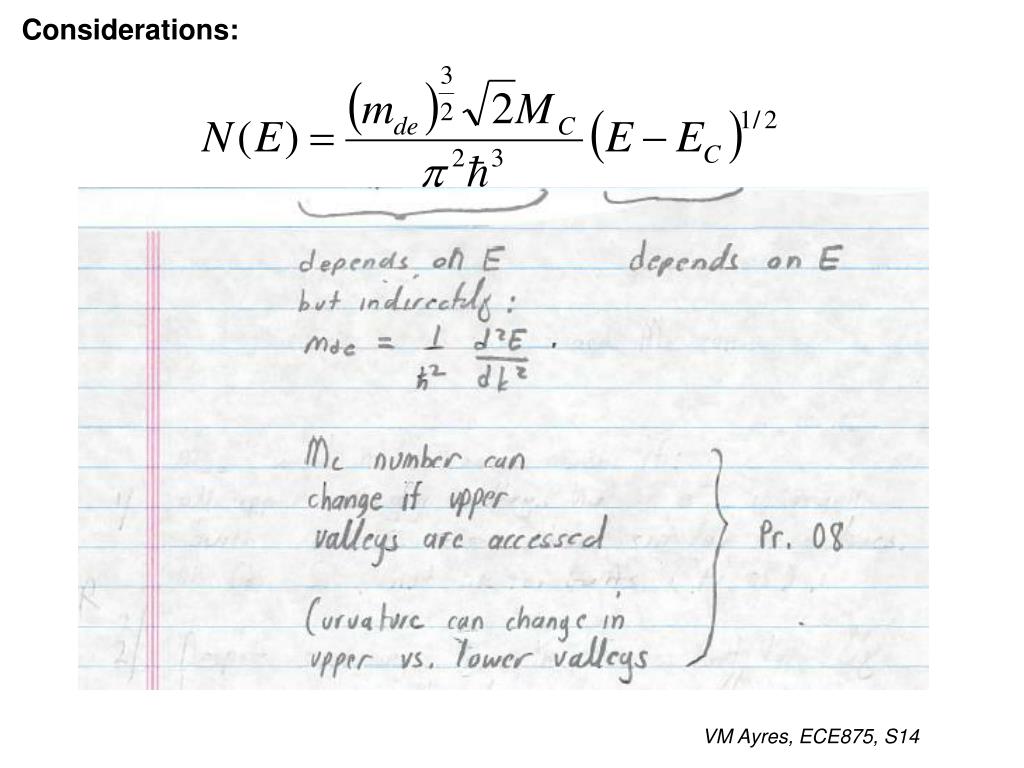 Considerations:
N(E) = (m_de)^(3/2) √2 M_C / π² ħ³ (E − E_C)^1/2
depends on E
depends on E
but indirectly :
m_de = 1/ħ² d²E/dk² .
Mc number can
change if upper
valleys are accessed
Pr. 08
Curvature can change in
upper vs. lower valleys
VM Ayres, ECE875, S14